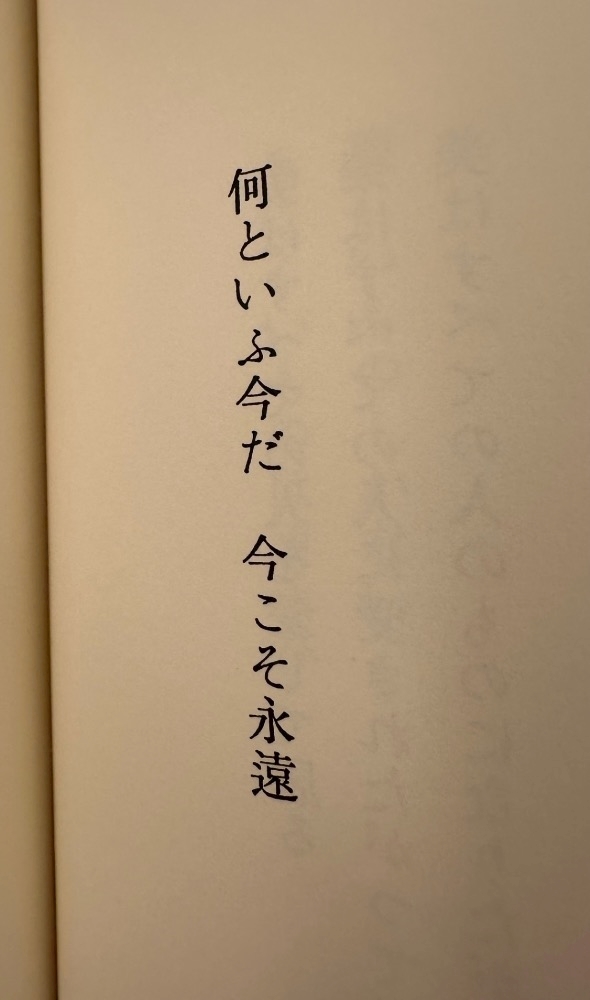 何といふ今だ　今こそ永遠